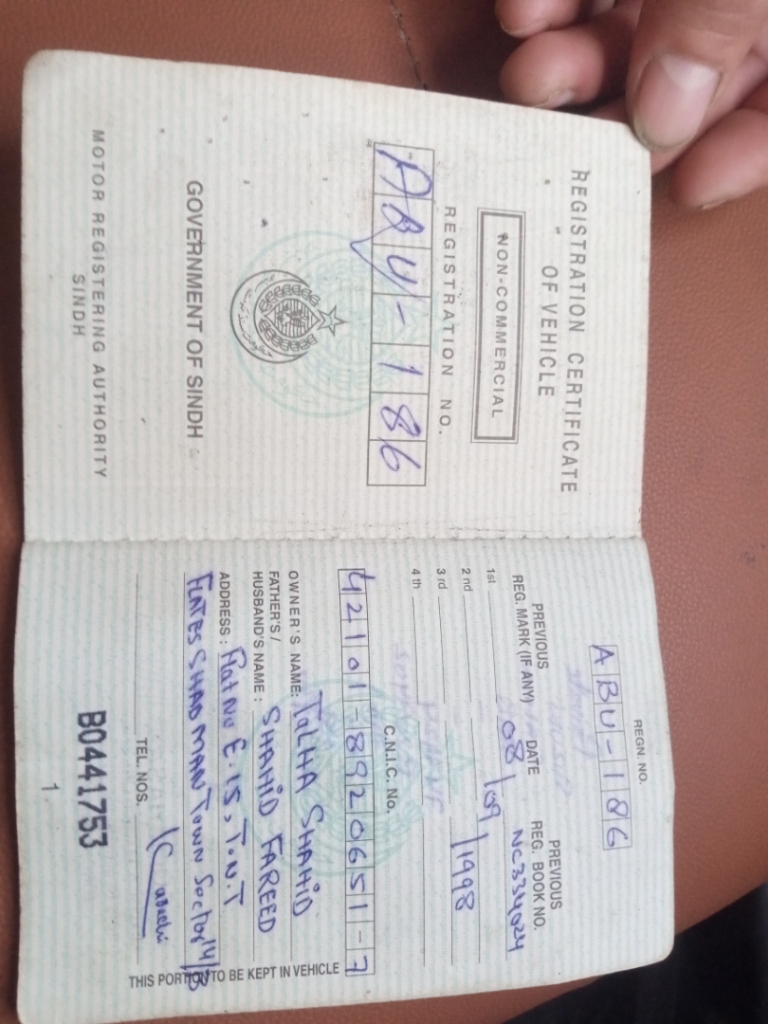 REGISTRATION CERTIFICATE
OF VEHICLE
NON-COMMERCIAL
REGISTRATION NO.
ABU-186
GOVERNMENT OF SINDH
MOTOR REGISTERING AUTHORITY
SINDH
REGN. NO.
ABU-186
PREVIOUS REG. MARK (IF ANY) DATE PREVIOUS REG. BOOK NO.
1st 08/09/1998 NC334024
2nd
3rd
4th
C.N.I.C. No.
42101-8920651-7
OWNER'S NAME: TALHA SHAHID
FATHER'S / HUSBAND'S NAME: SHAHID FAREED
ADDRESS: Flat No E.15, T.N.T
FLATES SHADMAN TOWN Sector 14/B
Karachi
TEL. NOS.
B0441753
1
THIS PORTION TO BE KEPT IN VEHICLE